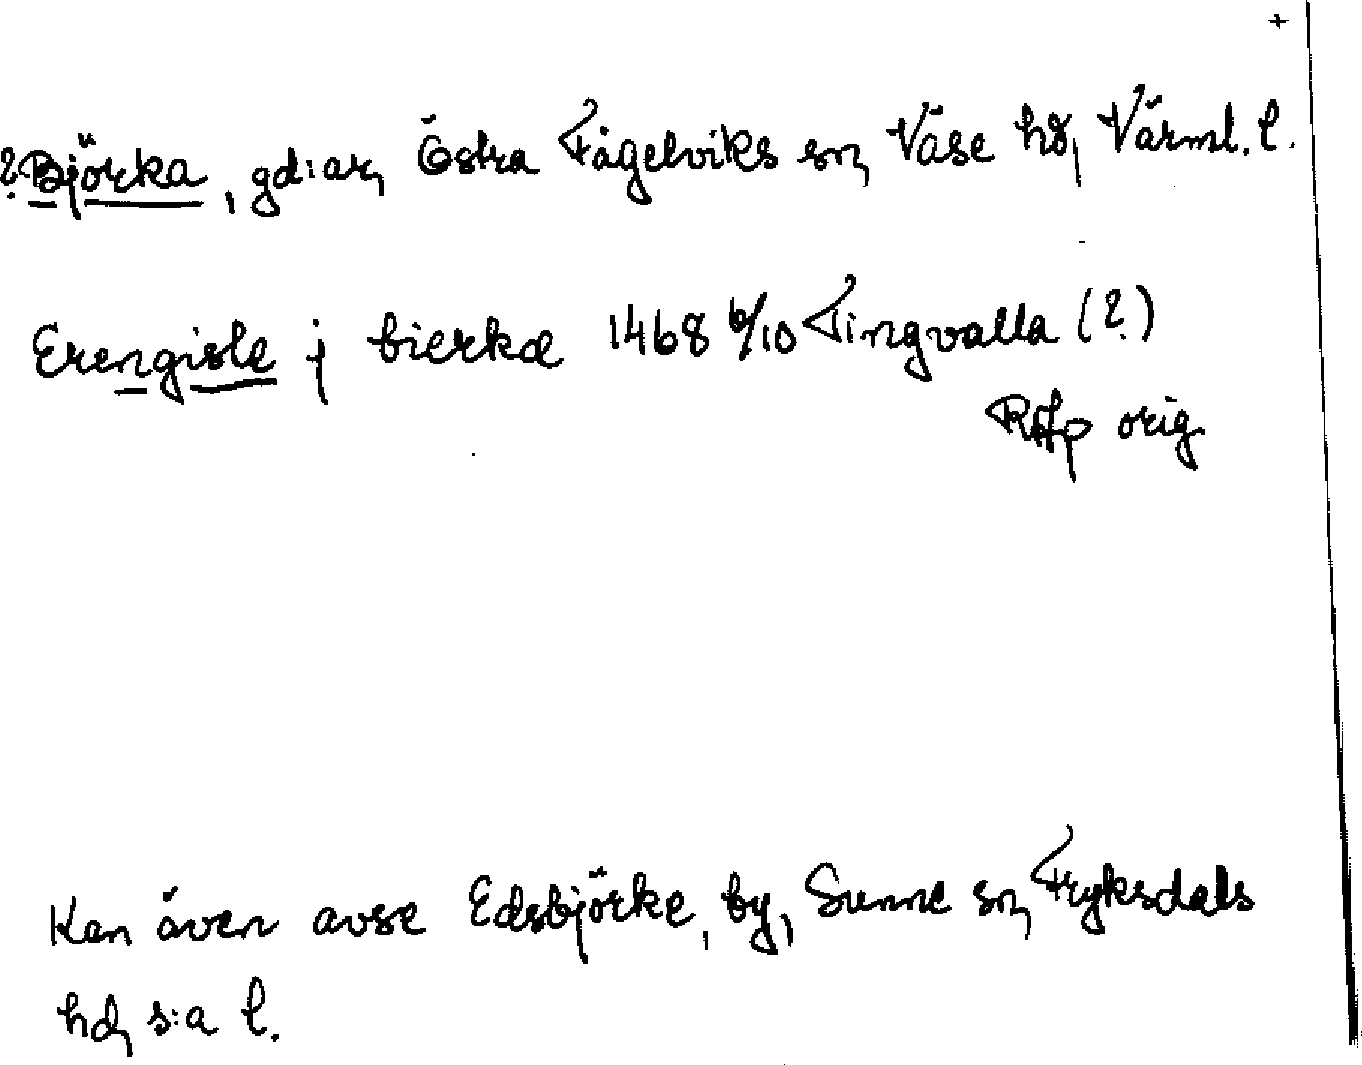 +
?Björka, gd:ar, Östra Fågelviks sn, Väse hd, Värml. l.
Erengisle j bierkæ 1468 6/10 Tingvalla (?)
RAp orig
Kan även avse Edsbjörke, by, Sunne sn, Fryksdals
hd, s:a l.